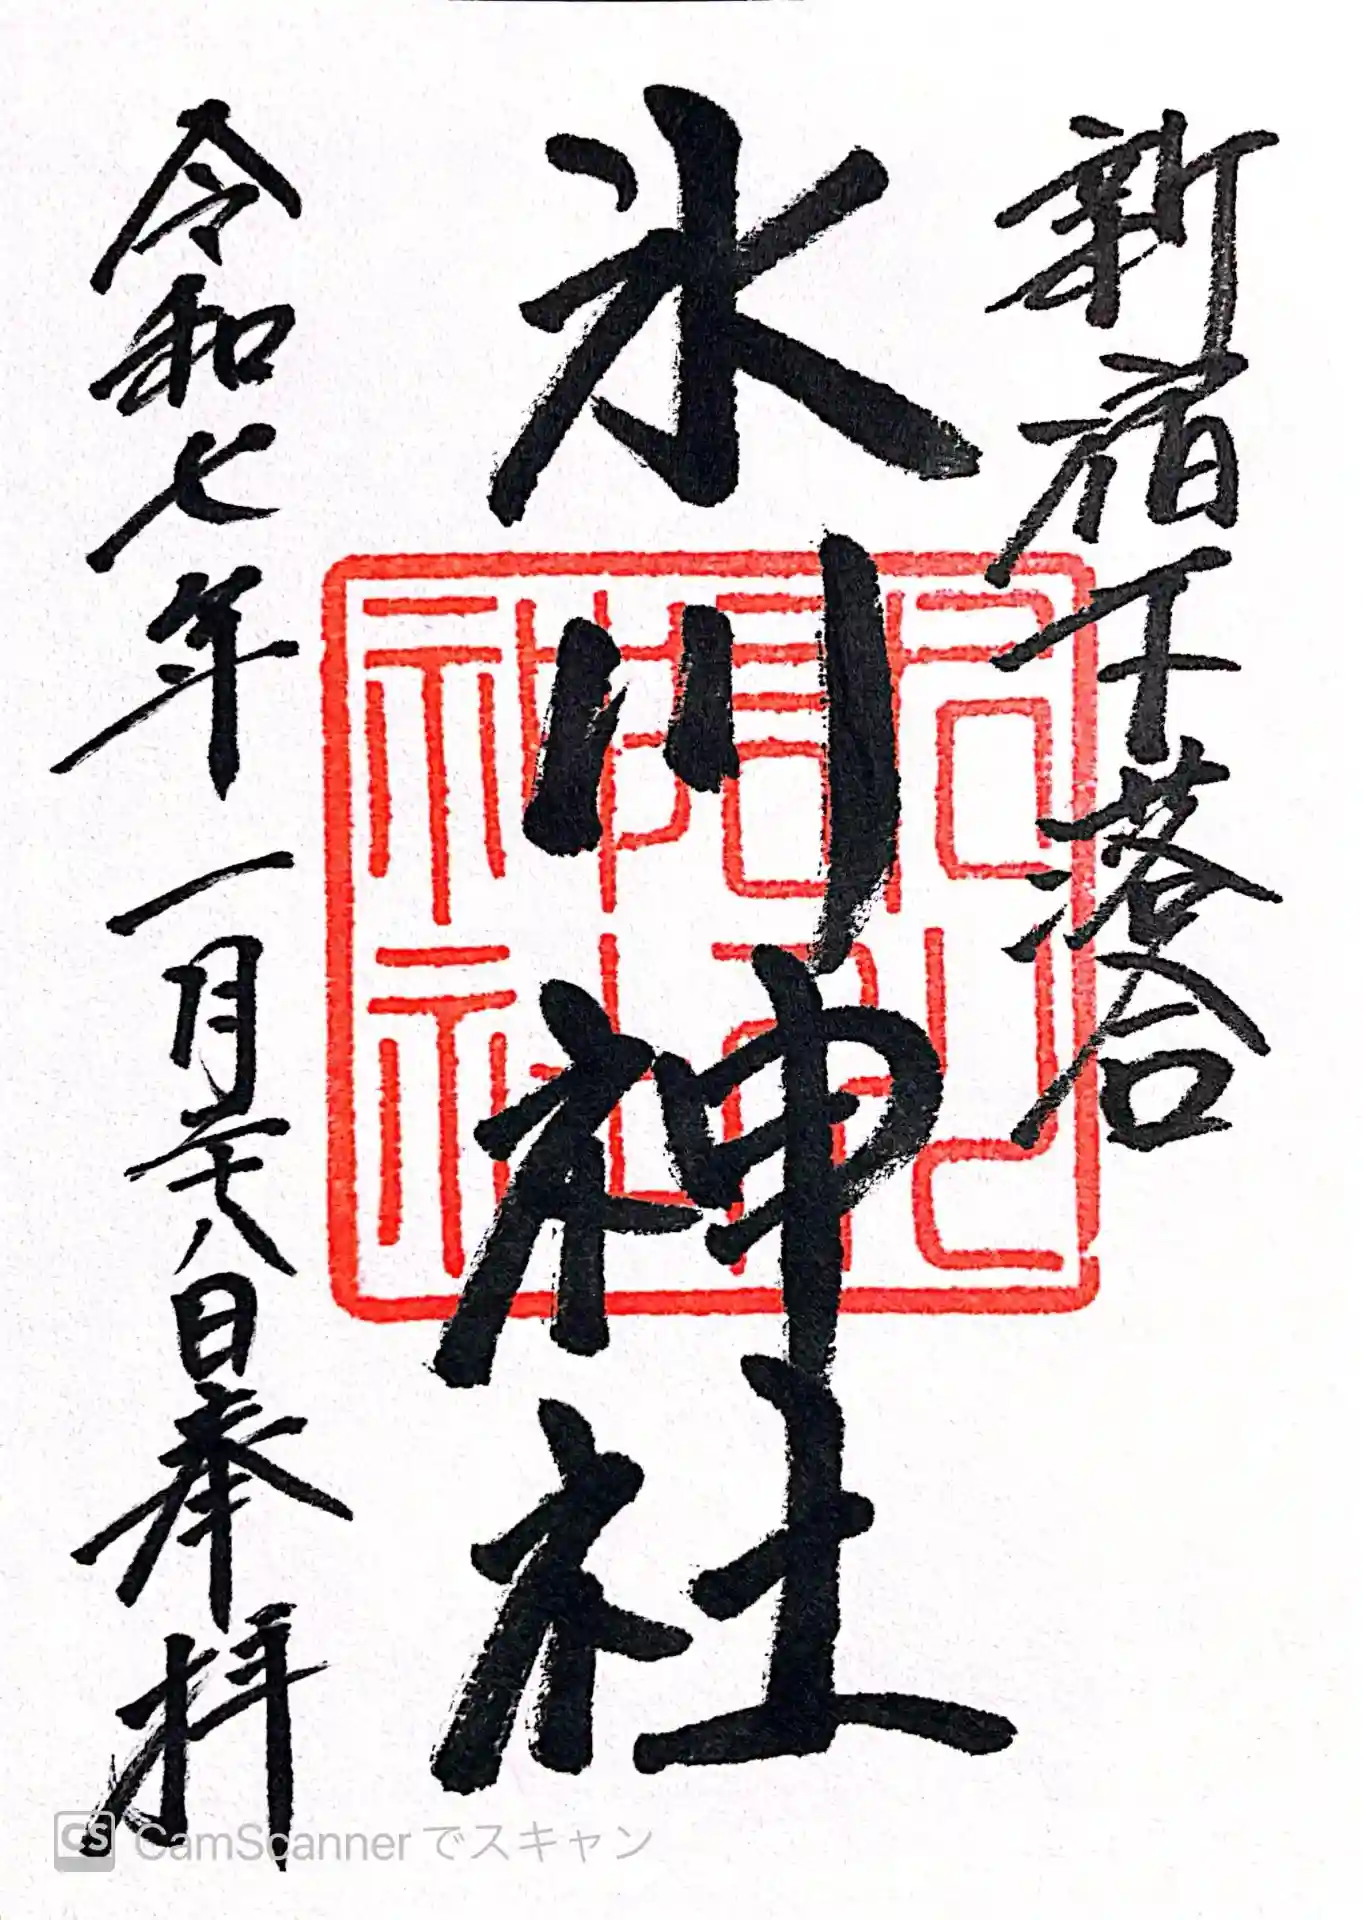 新宿下落合
氷川神社
令和七年一月二十八日奉拝
CS CamScannerでスキャン